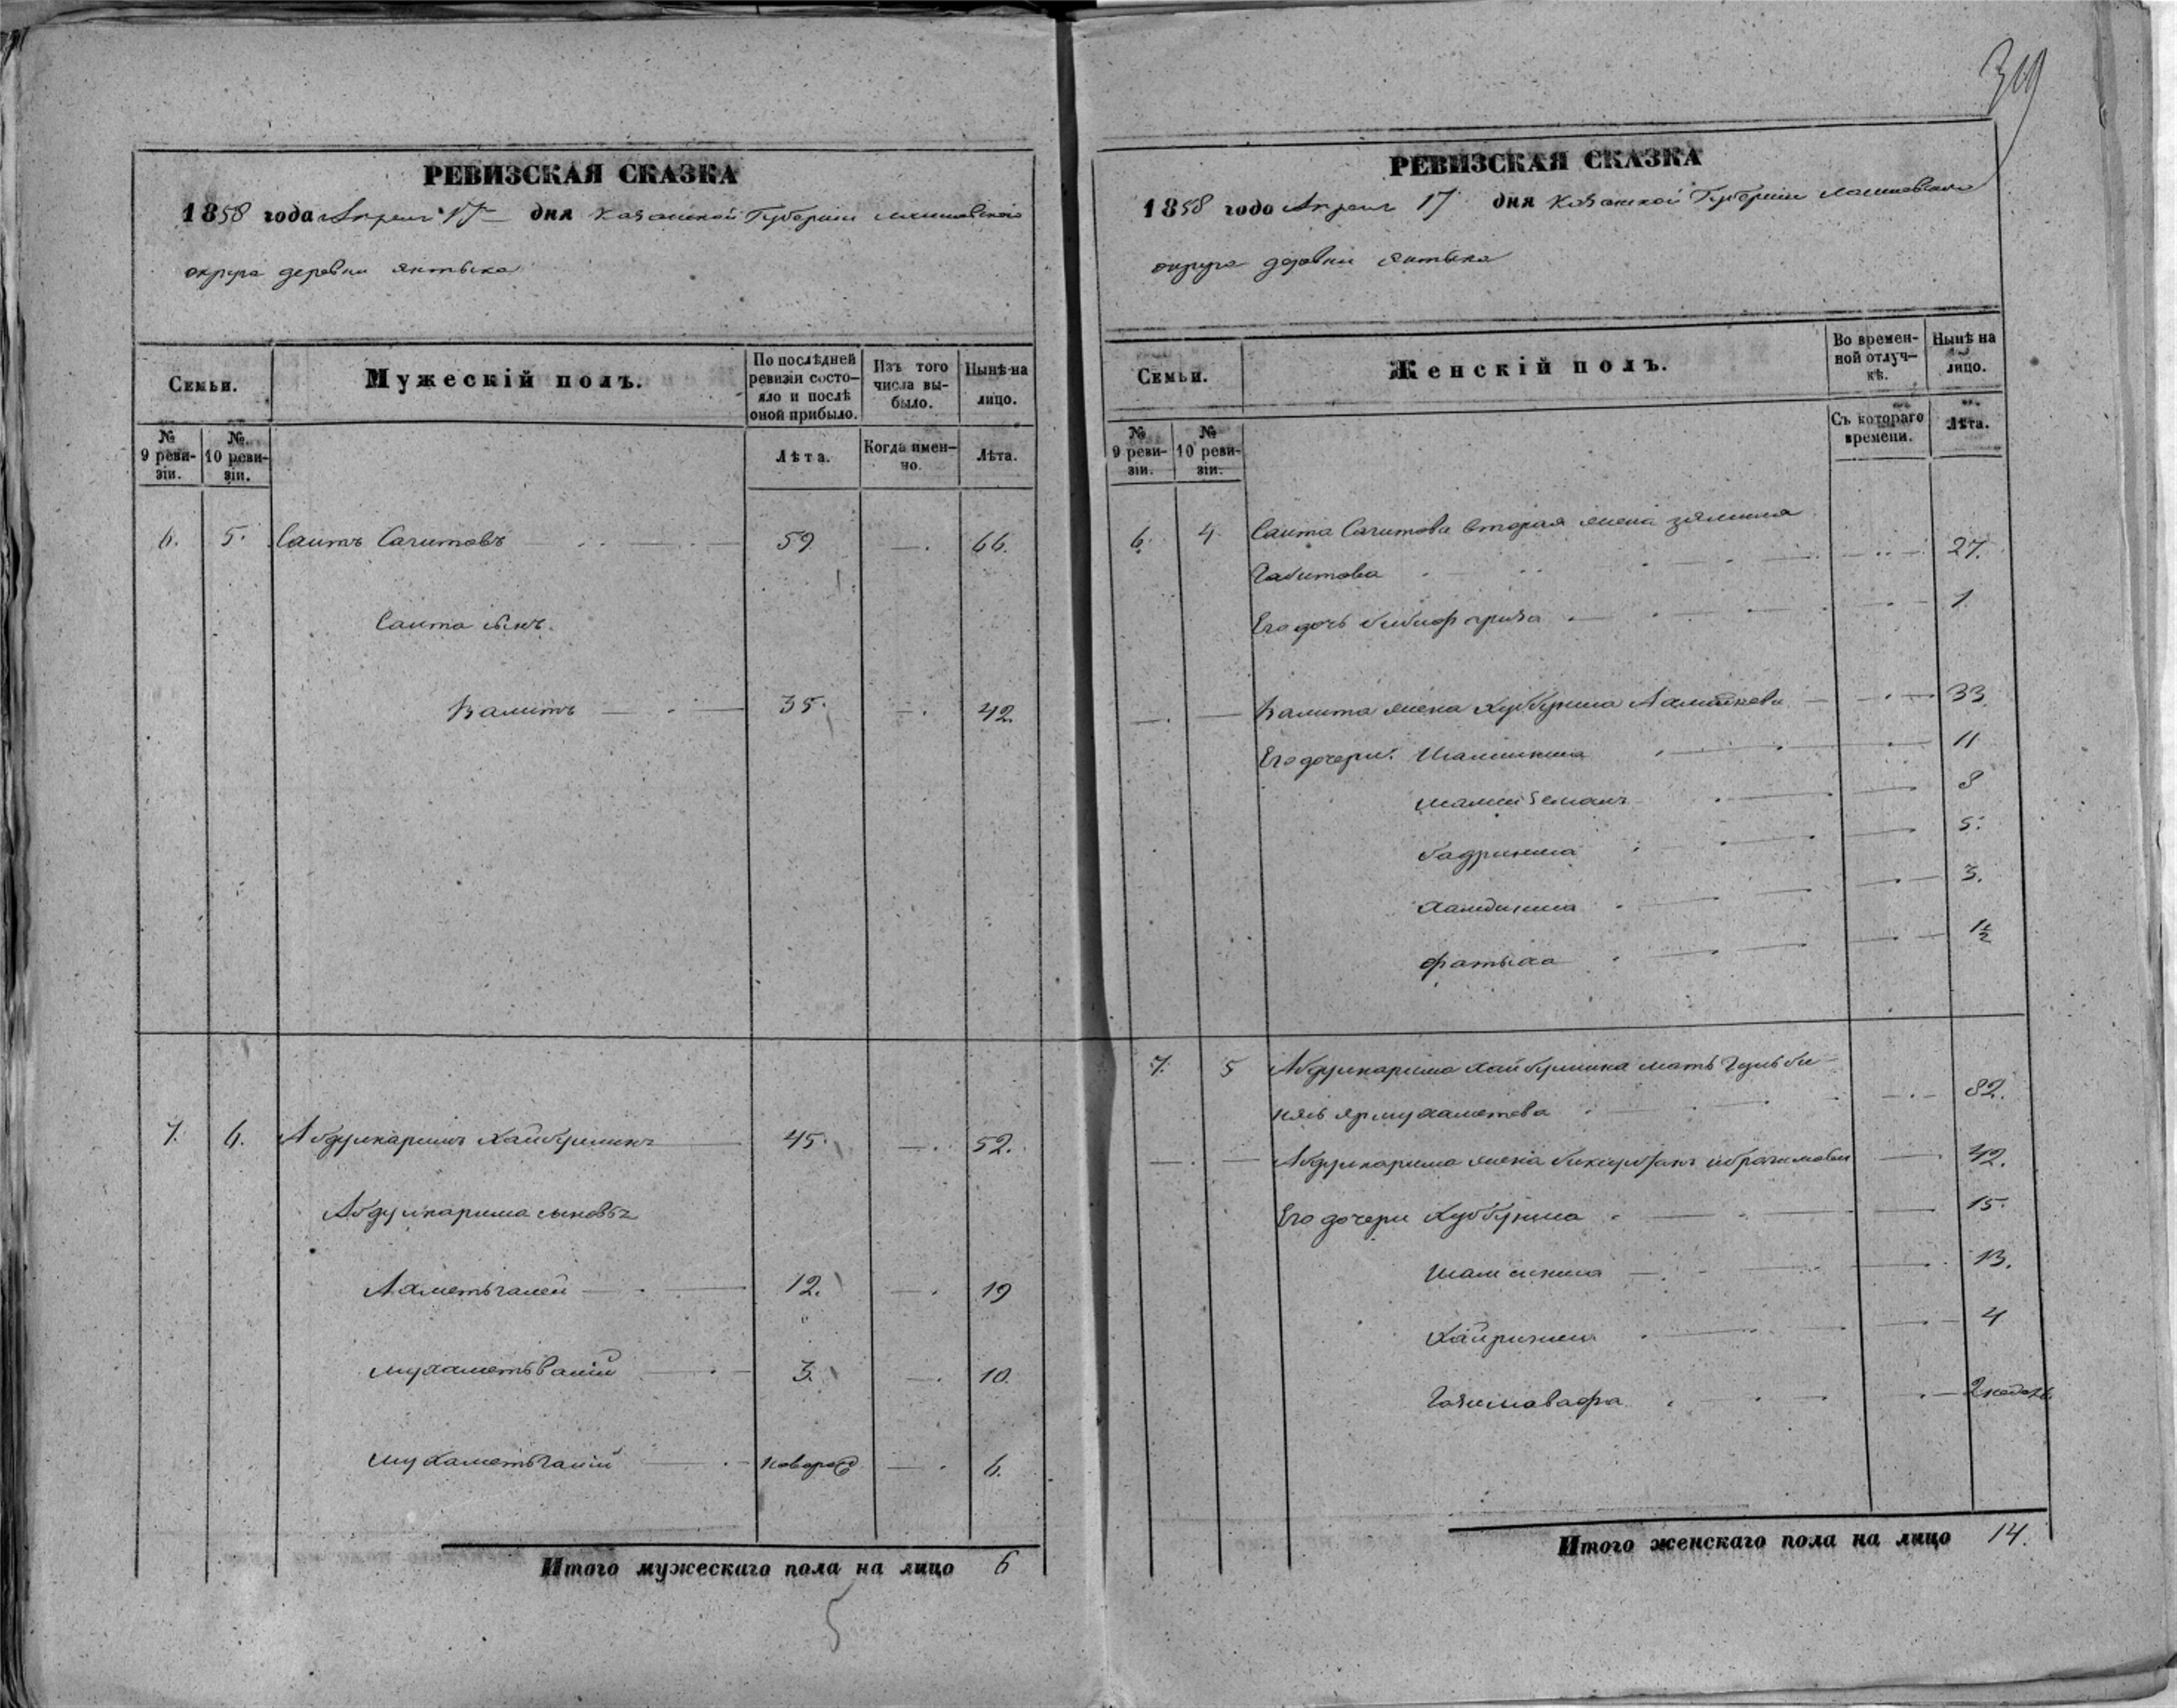 309
РЕВИЗСКАЯ СКАЗКА
1858 года Апреля 17 дня Казанской Губернии Лаишевскаго
округа деревни Янтыка
Семьи.
Мужескій полъ.
По послѣдней ревизіи состояло и послѣ оной прибыло.
Изъ того числа выбыло.
Нынѣ на лицо.
№ 9 ревизіи.
№ 10 ревизіи.
Лѣта.
Когда именно.
Лѣта.
6. 5. Саитъ Сагитовъ 59 66.
Саита сынъ.
Валитъ 35. 42.
7. 6. Абдулкаримъ Хайбуллинъ 45. 52.
Абдулкарима сыновья
Ахметьгалей 12. 19
Мухаметьвалій 3. 10.
Мухаметьганій новорож 6.
Итого мужескаго пола на лицо 6
5
РЕВИЗСКАЯ СКАЗКА
1858 года Апреля 17 дня Казанской Губернии Лаишевскаго
округа деревни Янтыка
Семьи.
Женскій полъ.
Во временной отлучкѣ.
Нынѣ на лицо.
№ 9 ревизіи.
№ 10 ревизіи.
Съ котораго времени.
Лѣта.
6. 4 Саита Сагитова вторая жена
Габитова 27.
Его дочь 1.
Валита жена 33
Его дочери: Шамсиниса 11
8
бадриниса 5.
3.
фатыха 1½
7. 5 Абдулкарима Хайбуллина мать Гульби
Ярмухаметева 82.
Абдулкарима жена Ибрагимова 42.
Его дочери Хуббуниса 15.
Шамсиниса 13.
Хайриниса 4
2 недель
Итого женскаго пола на лицо 14.